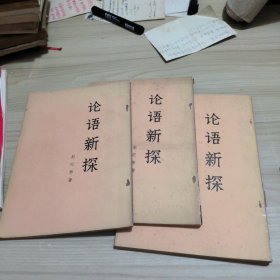 论语新探
论语新探
论语新探